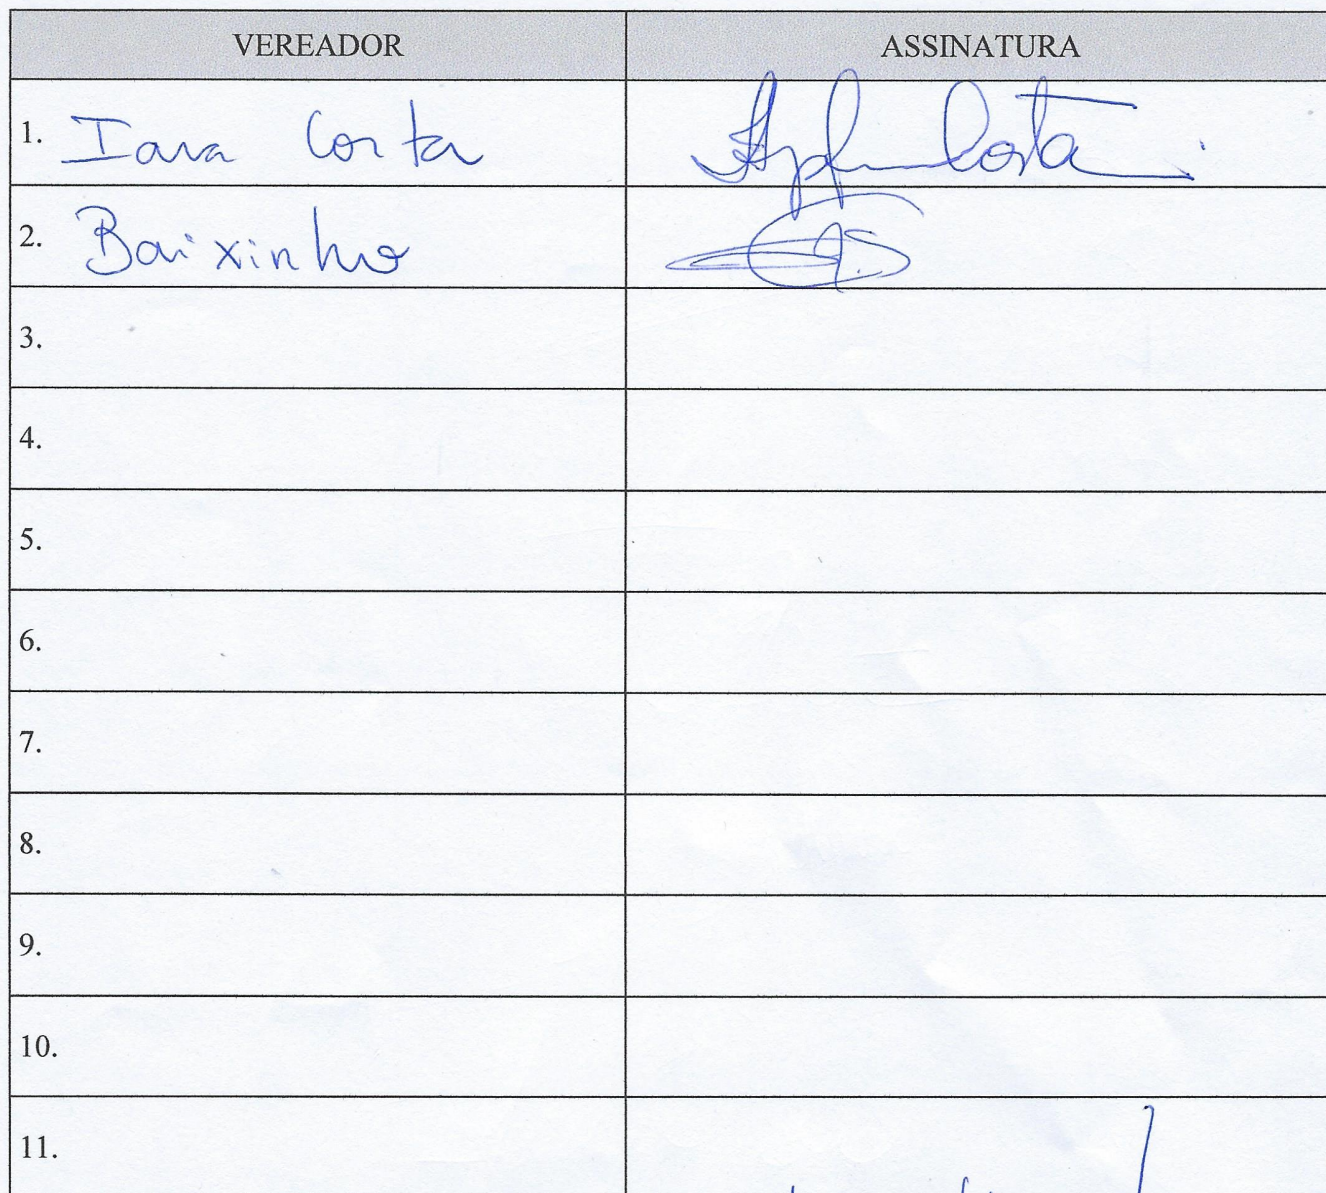 VEREADOR ASSINATURA
1. Iara Costa Costa
2. Baixinho
3.
4.
5.
6.
7.
8.
9.
10.
11.